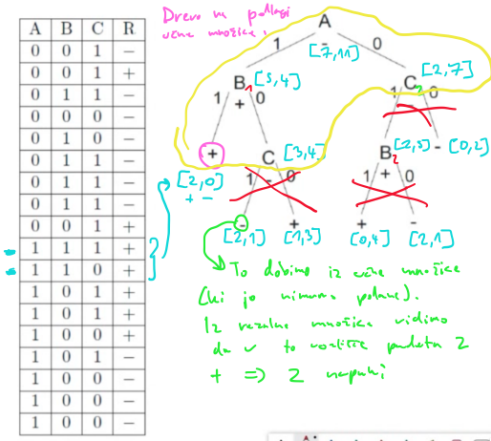 A B C R
0 0 1 −
0 0 1 +
0 1 1 −
0 0 0 −
0 1 0 −
0 1 1 −
0 1 1 −
0 1 1 −
0 0 1 +
1 1 1 +
1 1 0 +
1 0 1 +
1 0 1 +
1 0 0 +
1 0 1 −
1 0 0 −
1 0 0 −
1 0 0 −
Drevo na podlagi
učne množice.
A
1 - 0
[7,11]
B1 [5,4]
C2 [2,7]
1 + 0
1 - 0
+
C [3,4]
B2 [2,5]
- [0,2]
[2,0]
+ -
1 - 0
1 + 0
- + + -
[2,1] [1,3] [0,4] [2,1]
To dobimo iz učne množice
(ki jo nimamo podane).
Iz rezalne množice vidimo
da v to vozlišče padeta 2
+ => 2 napaki